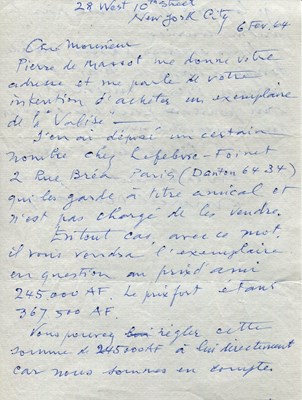 28 West 10th Street
New York City
6 Fev. 64
Cher Monsieur
Pierre de Massot me donne votre
adresse et me parle de votre
intention d'acheter un exemplaire
de la Valise —
J'en ai déposé un certain
nombre chez Lefebvre-Foinet
2 Rue Bréa Paris (Danton 64 34)
qui les garde à titre amical et
n'est pas chargé de les vendre.
En tout cas, avec ce mot,
il vous vendra l'exemplaire
en question au prix d'ami
245 000 AF. Le prix fort étant
367 500 AF.
Vous pouvez régler cette
somme de 245000AF à lui directement
car nous sommes en compte.